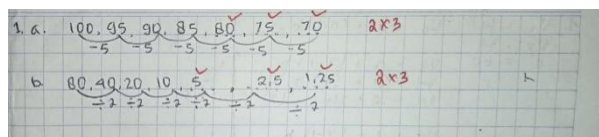 1. a. 100, 95, 90, 85, 80, 75, 70 2x3
-5 -5 -5 -5 -5 -5
b 80, 40, 20, 10, 5, 2,5, 1,25 2x3
÷2 ÷2 ÷2 ÷2 ÷2 ÷2